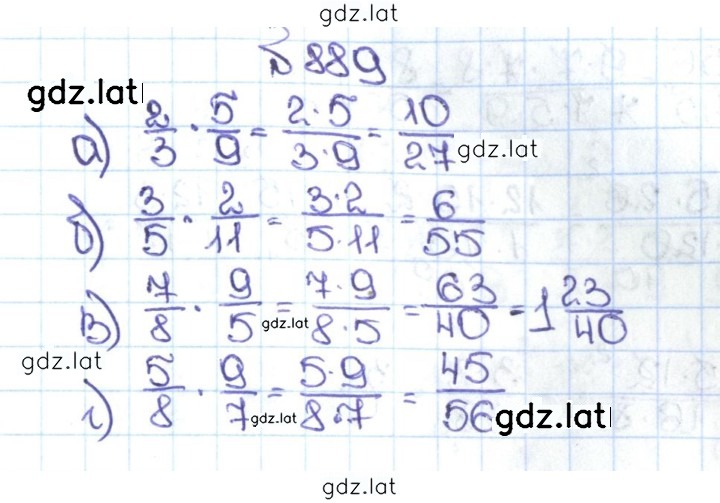 gdz.lat
№ 889
gdz.lat
а) 2/3 · 5/9 = 2·5/3·9 = 10/27 gdz.lat
б) 3/5 · 2/11 = 3·2/5·11 = 6/55
в) 7/8 · 9/5 = 7·9/8·5 = 63/40 = 1 23/40
gdz.lat
gdz.lat
г) 5/8 · 9/7 = 5·9/8·7 = 45/56
gdz.lat gdz.lat
gdz.lat